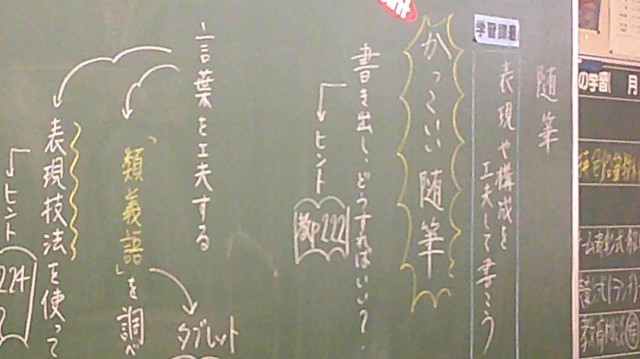 随筆
学習課題
表現や構成を
工夫して書こう
かっこいい随筆
書き出し、どうすればいい?
ヒント
教P222
言葉を工夫する
「類義語」を調べ
タブレット
表現技法を使って
ヒント
224
の学習
月